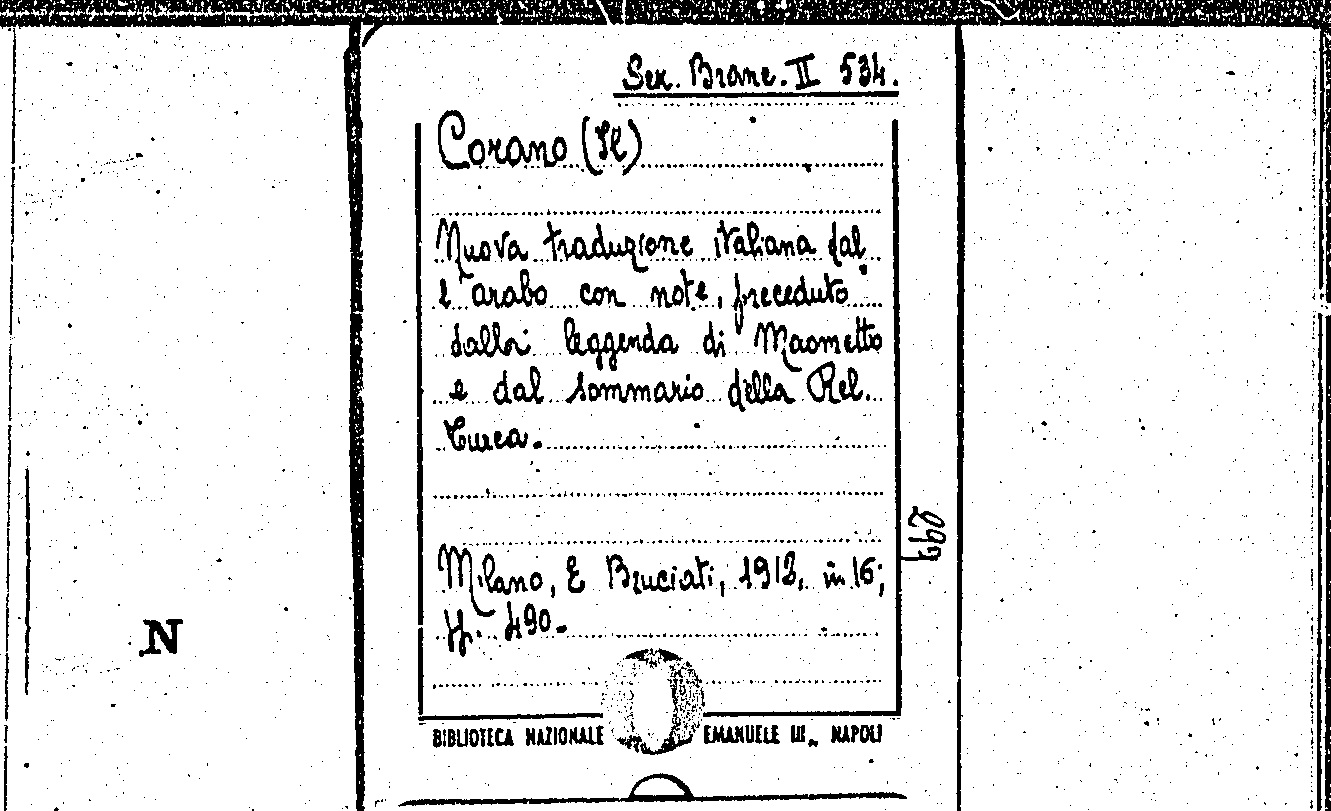 Ser. Branc. II 534.
Corano (Il)
Nuova traduzione italiana dal
l'arabo con note, preceduto
dalla leggenda di Maometto
e dal sommario della Rel.
Turca.
297
Milano, E Bruciati, 1913, in 16;
pp. 490.
N
BIBLIOTECA NAZIONALE EMANUELE III„ NAPOLI